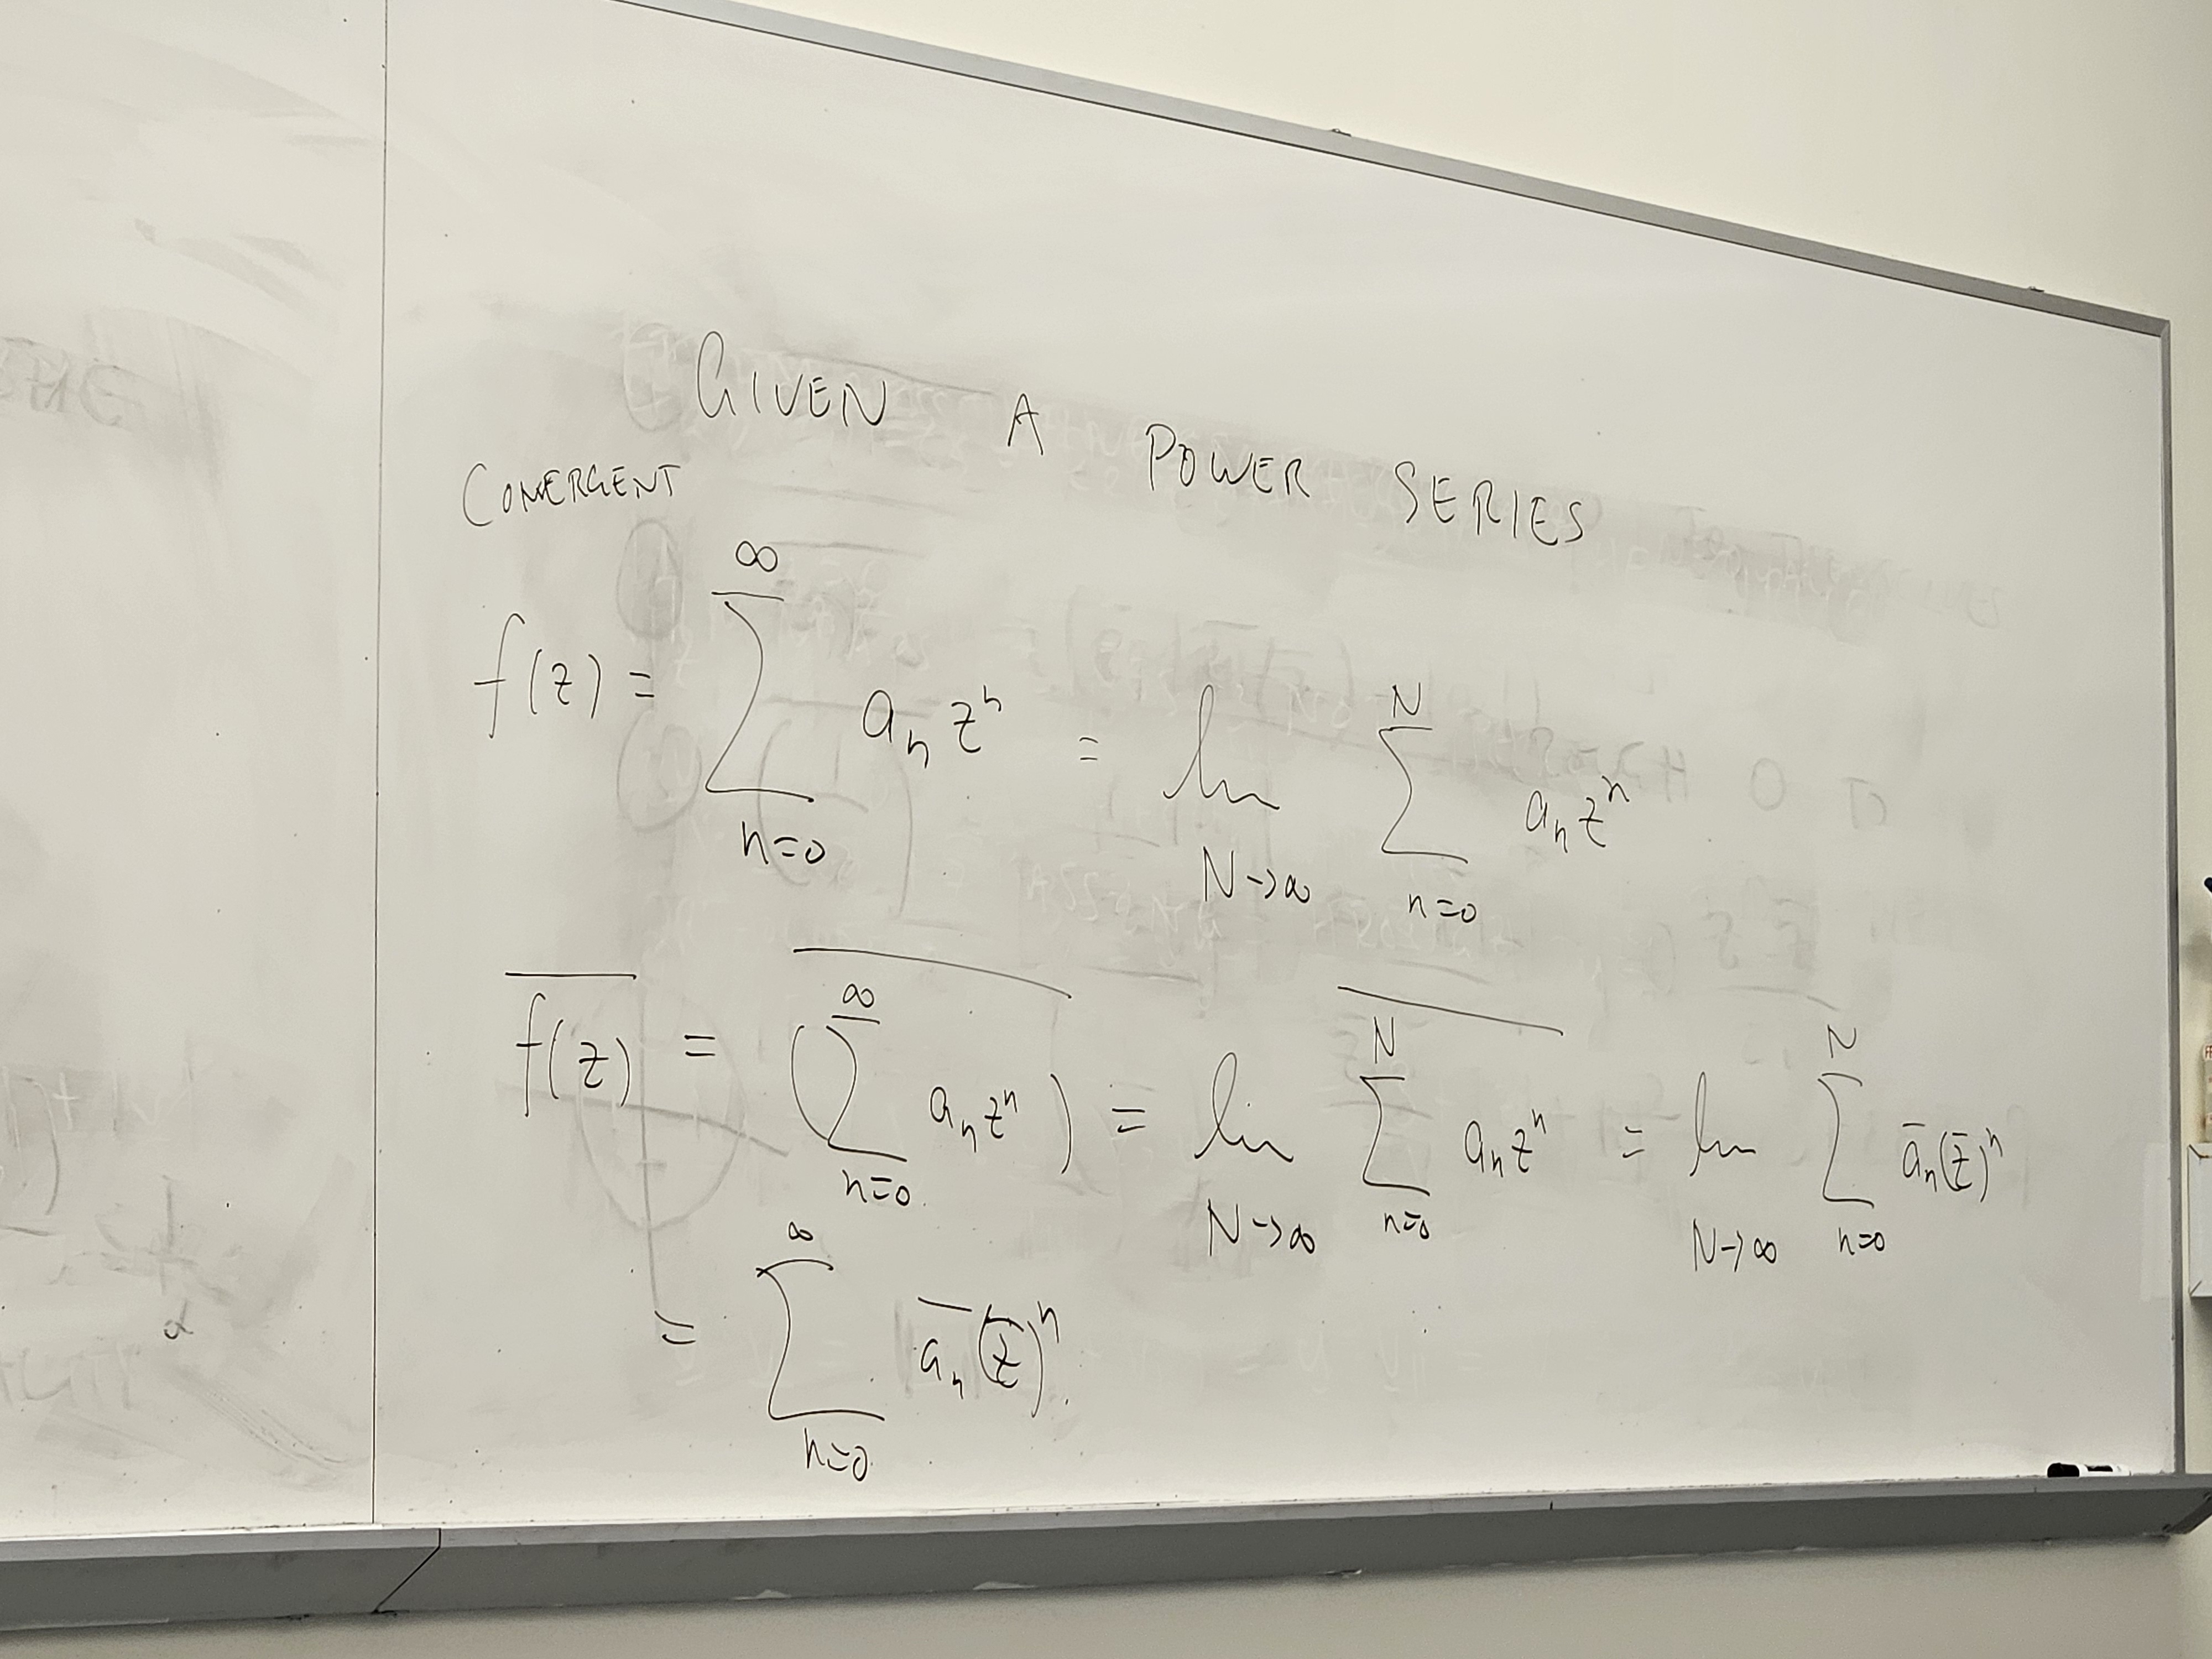 GIVEN A POWER SERIES
CONVERGENT
f(z) = ∑_{n=0}^{∞} a_n z^n = lim_{N→∞} ∑_{n=0}^{N} a_n z^n
\overline{f(z)} = \overline{(∑_{n=0}^{∞} a_n z^n)} = lim_{N→∞} \overline{∑_{n=0}^{N} a_n z^n} = lim_{N→∞} ∑_{n=0}^{N} \bar{a}_n (\bar{z})^n
= ∑_{n=0}^{∞} \overline{a_n} (\bar{z})^n.